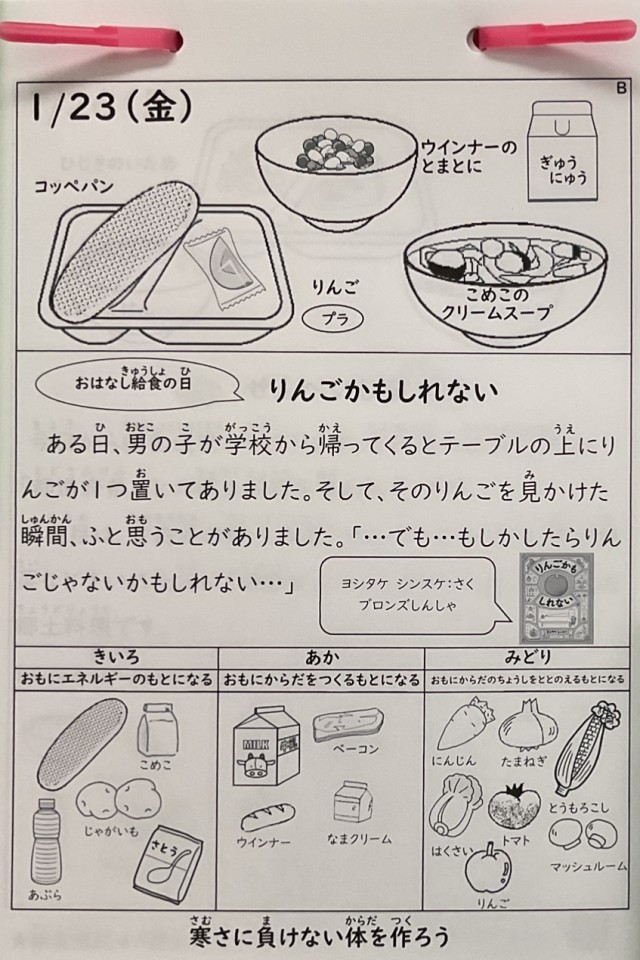 B
1/23(金)
コッペパン
ウインナーの
とまとに
ぎゅう
にゅう
りんご
プラ
こめこの
クリームスープ
きゅうしょ ひ
おはなし給食の日
りんごかもしれない
ひ おとこ こ がっこう かえ うえ
ある日、男の子が学校から帰ってくるとテーブルの上にり
お み
んごが1つ置いてありました。そして、そのりんごを見かけた
しゅんかん おも
瞬間、ふと思うことがありました。「…でも…もしかしたらりん
ごじゃないかもしれない…」
ヨシタケ シンスケ:さく
ブロンズしんしゃ
りんごかも
しれない
きいろ
おもにエネルギーのもとになる
あか
おもにからだをつくるもとになる
みどり
おもにからだのちょうしをととのえるもとになる
こめこ
じゃがいも
さとう
あぶら
MILK
ベーコン
ウインナー
なまクリーム
にんじん
たまねぎ
とうもろこし
はくさい
トマト
マッシュルーム
りんご
さむ ま からだ つく
寒さに負けない体を作ろう